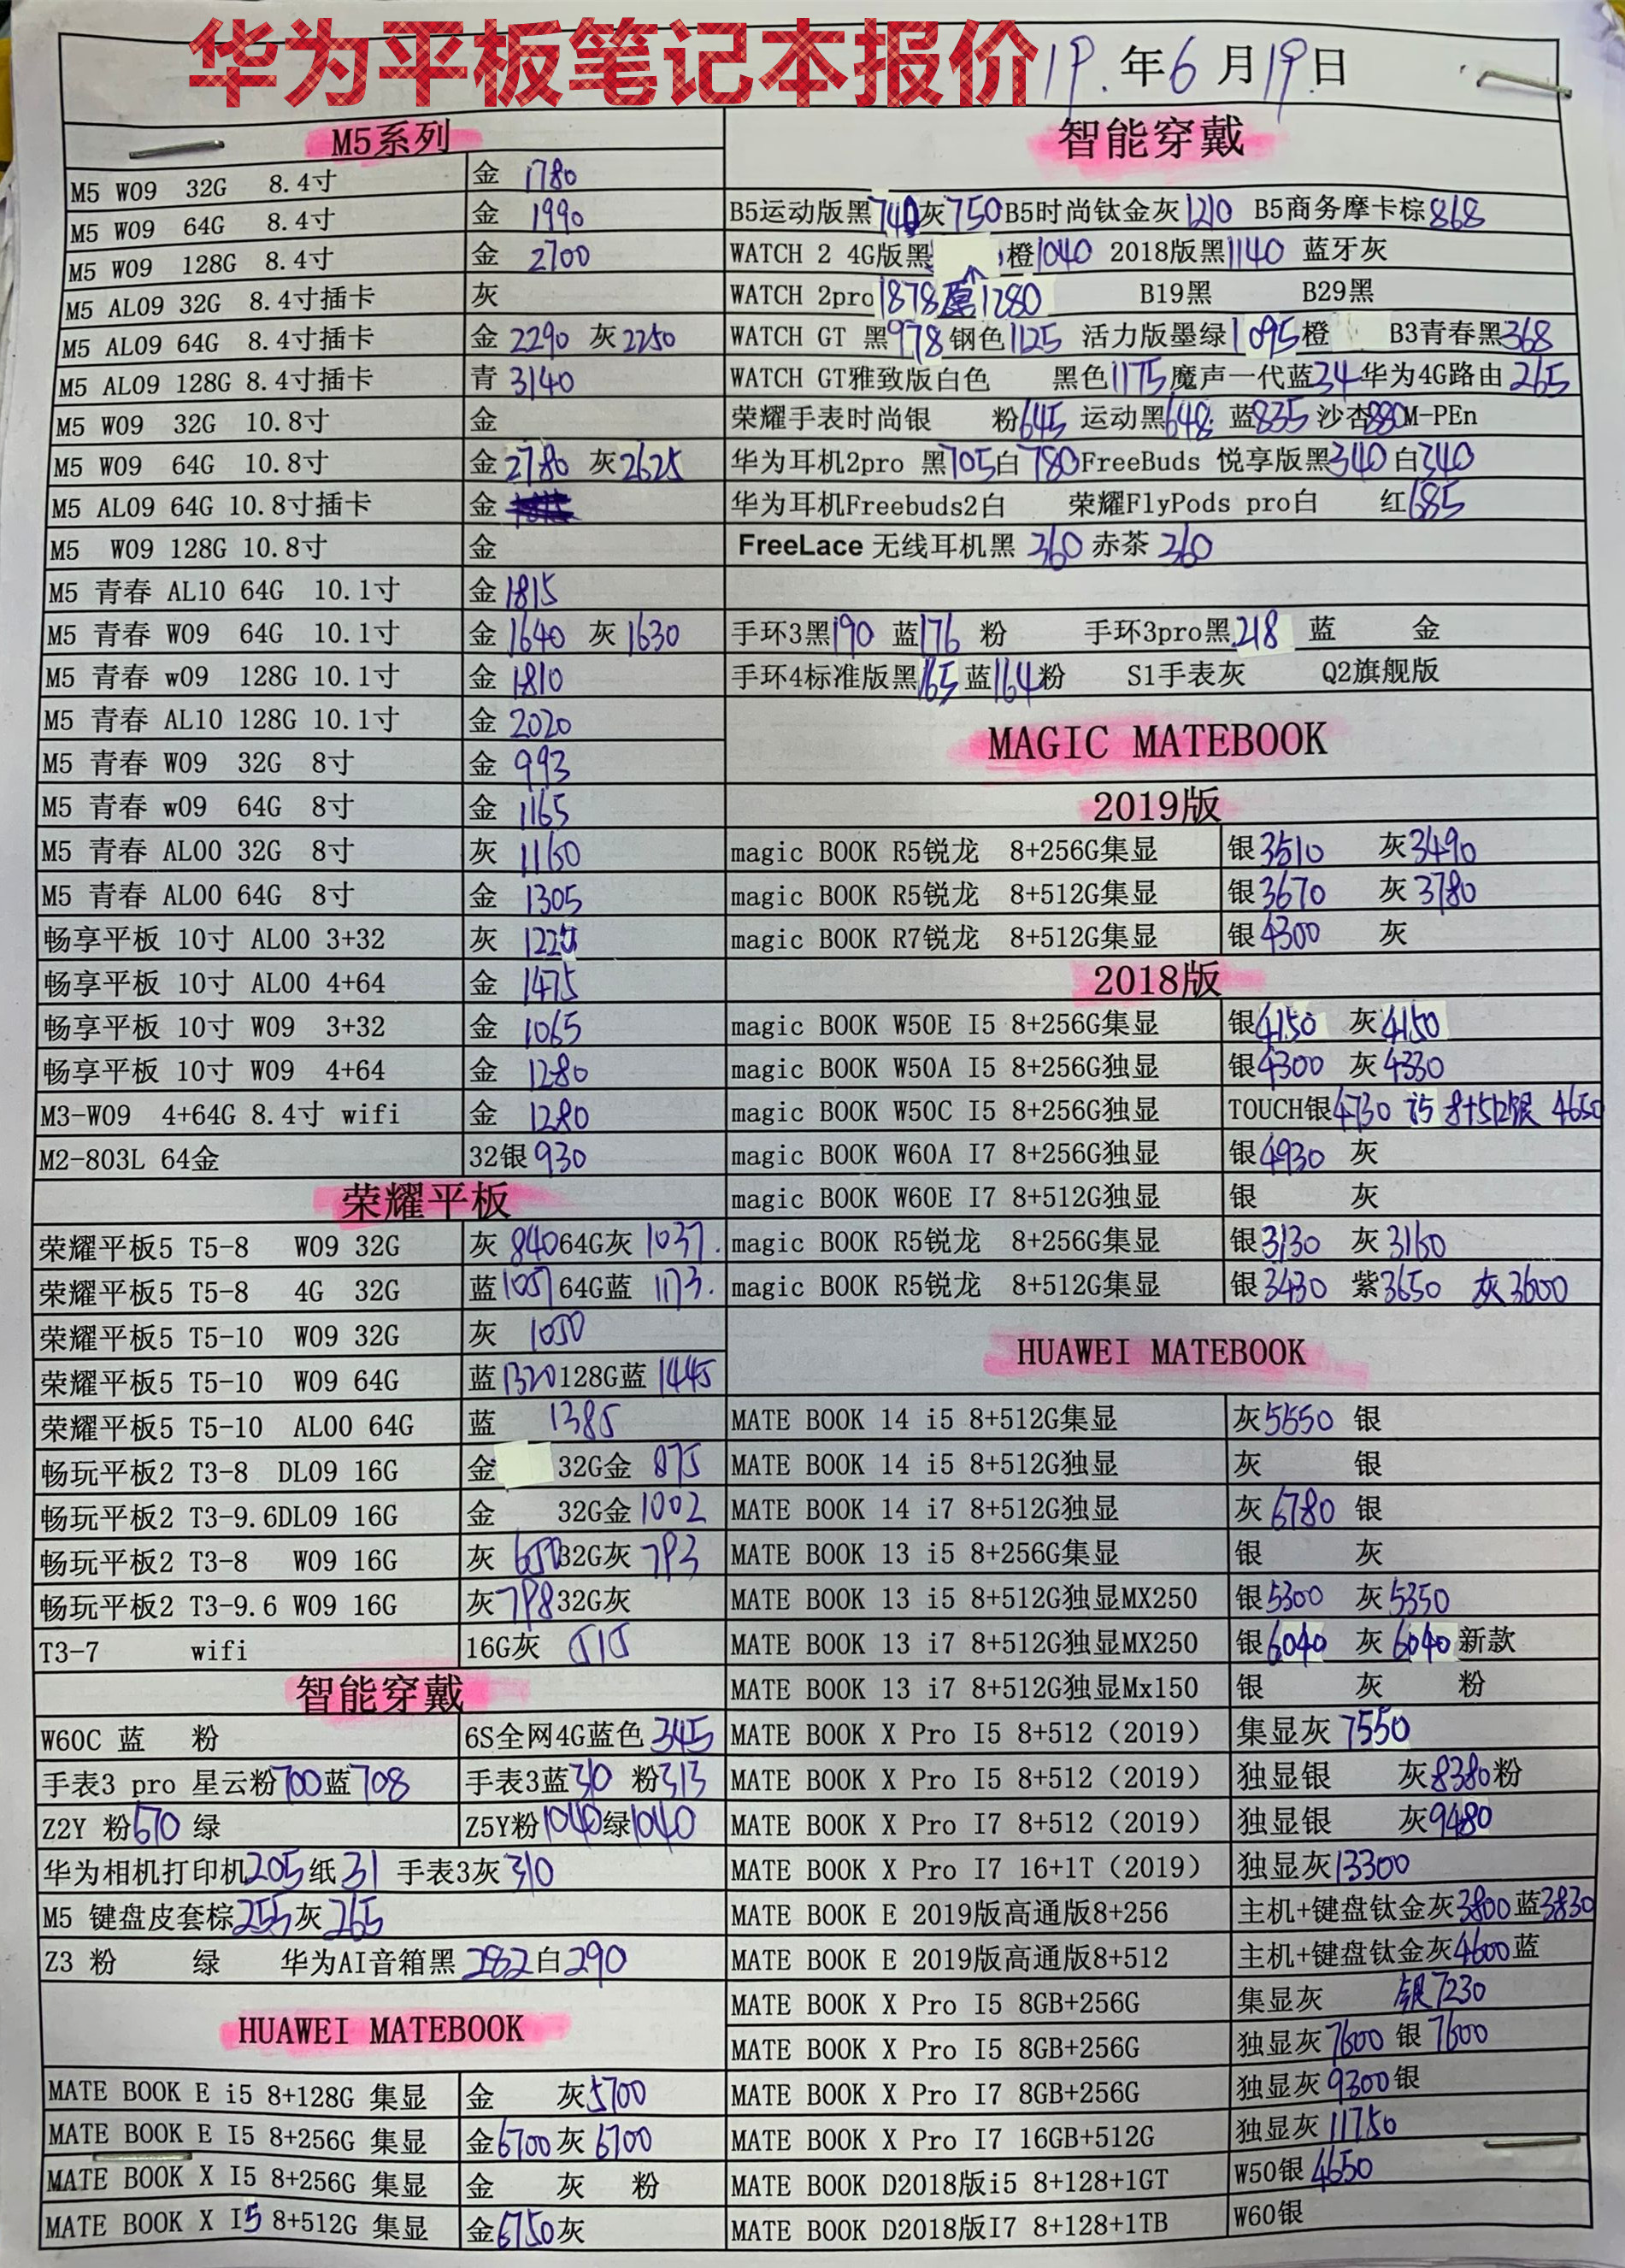 华为平板笔记本报价 19.年6月19.日
M5系列
M5 W09 32G 8.4寸 金 1780
M5 W09 64G 8.4寸 金 1990
M5 W09 128G 8.4寸 金 2700
M5 AL09 32G 8.4寸插卡 灰
M5 AL09 64G 8.4寸插卡 金 2290 灰 2250
M5 AL09 128G 8.4寸插卡 青 3140
M5 W09 32G 10.8寸 金
M5 W09 64G 10.8寸 金 2780 灰 2625
M5 AL09 64G 10.8寸插卡 金
M5 W09 128G 10.8寸 金
M5 青春 AL10 64G 10.1寸 金 1815
M5 青春 W09 64G 10.1寸 金 1640 灰 1630
M5 青春 w09 128G 10.1寸 金 1810
M5 青春 AL10 128G 10.1寸 金 2020
M5 青春 W09 32G 8寸 金 993
M5 青春 w09 64G 8寸 金 1165
M5 青春 AL00 32G 8寸 灰 1160
M5 青春 AL00 64G 8寸 金 1305
畅享平板 10寸 AL00 3+32 灰
畅享平板 10寸 AL00 4+64 金 1475
畅享平板 10寸 W09 3+32 金 1065
畅享平板 10寸 W09 4+64 金 1280
M3-W09 4+64G 8.4寸 wifi 金 1280
M2-803L 64金 32银 930
荣耀平板
荣耀平板5 T5-8 W09 32G 灰 840 64G灰 1037.
荣耀平板5 T5-8 4G 32G 蓝 1057 64G蓝 1173.
荣耀平板5 T5-10 W09 32G 灰 1050
荣耀平板5 T5-10 W09 64G 蓝 1320 128G蓝 1445
荣耀平板5 T5-10 AL00 64G 蓝 1385
畅玩平板2 T3-8 DL09 16G 金 32G金 875
畅玩平板2 T3-9.6DL09 16G 金 32G金 1002
畅玩平板2 T3-8 W09 16G 灰 650 32G灰 793
畅玩平板2 T3-9.6 W09 16G 灰 798 32G灰
T3-7 wifi 16G灰 515
智能穿戴
W60C 蓝 粉 6S全网4G蓝色 345
手表3 pro 星云粉 700 蓝 708 手表3蓝 310 粉 313
Z2Y 粉 670 绿 Z5Y粉 1040 绿 1040
华为相机打印机 205 纸 31 手表3灰 310
M5 键盘皮套棕 255 灰 265
Z3 粉 绿 华为AI音箱黑 282 白 290
HUAWEI MATEBOOK
MATE BOOK E i5 8+128G 集显 金 灰 5700
MATE BOOK E I5 8+256G 集显 金 6700 灰 6700
MATE BOOK X I5 8+256G 集显 金 灰 粉
MATE BOOK X I5 8+512G 集显 金 6750 灰
智能穿戴
B5运动版黑 740 灰 750 B5时尚钛金灰 1210 B5商务摩卡棕 868
WATCH 2 4G版黑 橙 1040 2018版黑 1140 蓝牙灰
WATCH 2pro 1878 1280 B19黑 B29黑
WATCH GT 黑 978 钢色 1125 活力版墨绿 1095 橙 B3青春黑 368
WATCH GT雅致版白色 黑色 1175 魔声一代蓝 34 华为4G路由 265
荣耀手表时尚银 粉 645 运动黑 648 蓝 835 沙杏 880 M-PEn
华为耳机2pro 黑 705 白 780 FreeBuds 悦享版黑 340 白 340
华为耳机Freebuds2白 荣耀FlyPods pro白 红 685
FreeLace 无线耳机黑 360 赤茶 360
手环3黑 190 蓝 176 粉 手环3pro黑 218 蓝 金
手环4标准版黑 165 蓝 164 粉 S1手表灰 Q2旗舰版
MAGIC MATEBOOK
2019版
magic BOOK R5锐龙 8+256G集显 银 3510 灰 3490
magic BOOK R5锐龙 8+512G集显 银 3670 灰 3780
magic BOOK R7锐龙 8+512G集显 银 4300 灰
2018版
magic BOOK W50E I5 8+256G集显 银 4150 灰 4150
magic BOOK W50A I5 8+256G独显 银 4300 灰 4330
magic BOOK W50C I5 8+256G独显 TOUCH银 4730 i5 8+512银 4650
magic BOOK W60A I7 8+256G独显 银 4930 灰
magic BOOK W60E I7 8+512G独显 银 灰
magic BOOK R5锐龙 8+256G集显 银 3130 灰 3160
magic BOOK R5锐龙 8+512G集显 银 3430 紫 3650 灰 3600
HUAWEI MATEBOOK
MATE BOOK 14 i5 8+512G集显 灰 5550 银
MATE BOOK 14 i5 8+512G独显 灰 银
MATE BOOK 14 i7 8+512G独显 灰 6780 银
MATE BOOK 13 i5 8+256G集显 银 灰
MATE BOOK 13 i5 8+512G独显MX250 银 5300 灰 5350
MATE BOOK 13 i7 8+512G独显MX250 银 6040 灰 6040 新款
MATE BOOK 13 i7 8+512G独显Mx150 银 灰 粉
MATE BOOK X Pro I5 8+512（2019） 集显灰 7550
MATE BOOK X Pro I5 8+512（2019） 独显银 灰 8380 粉
MATE BOOK X Pro I7 8+512（2019） 独显银 灰 9480
MATE BOOK X Pro I7 16+1T（2019） 独显灰 13300
MATE BOOK E 2019版高通版8+256 主机+键盘钛金灰 3800 蓝 3830
MATE BOOK E 2019版高通版8+512 主机+键盘钛金灰 4600 蓝
MATE BOOK X Pro I5 8GB+256G 集显灰 银 7230
MATE BOOK X Pro I5 8GB+256G 独显灰 7600 银 7600
MATE BOOK X Pro I7 8GB+256G 独显灰 9300 银
MATE BOOK X Pro I7 16GB+512G 独显灰 11750
MATE BOOK D2018版i5 8+128+1GT W50银 4650
MATE BOOK D2018版I7 8+128+1TB W60银